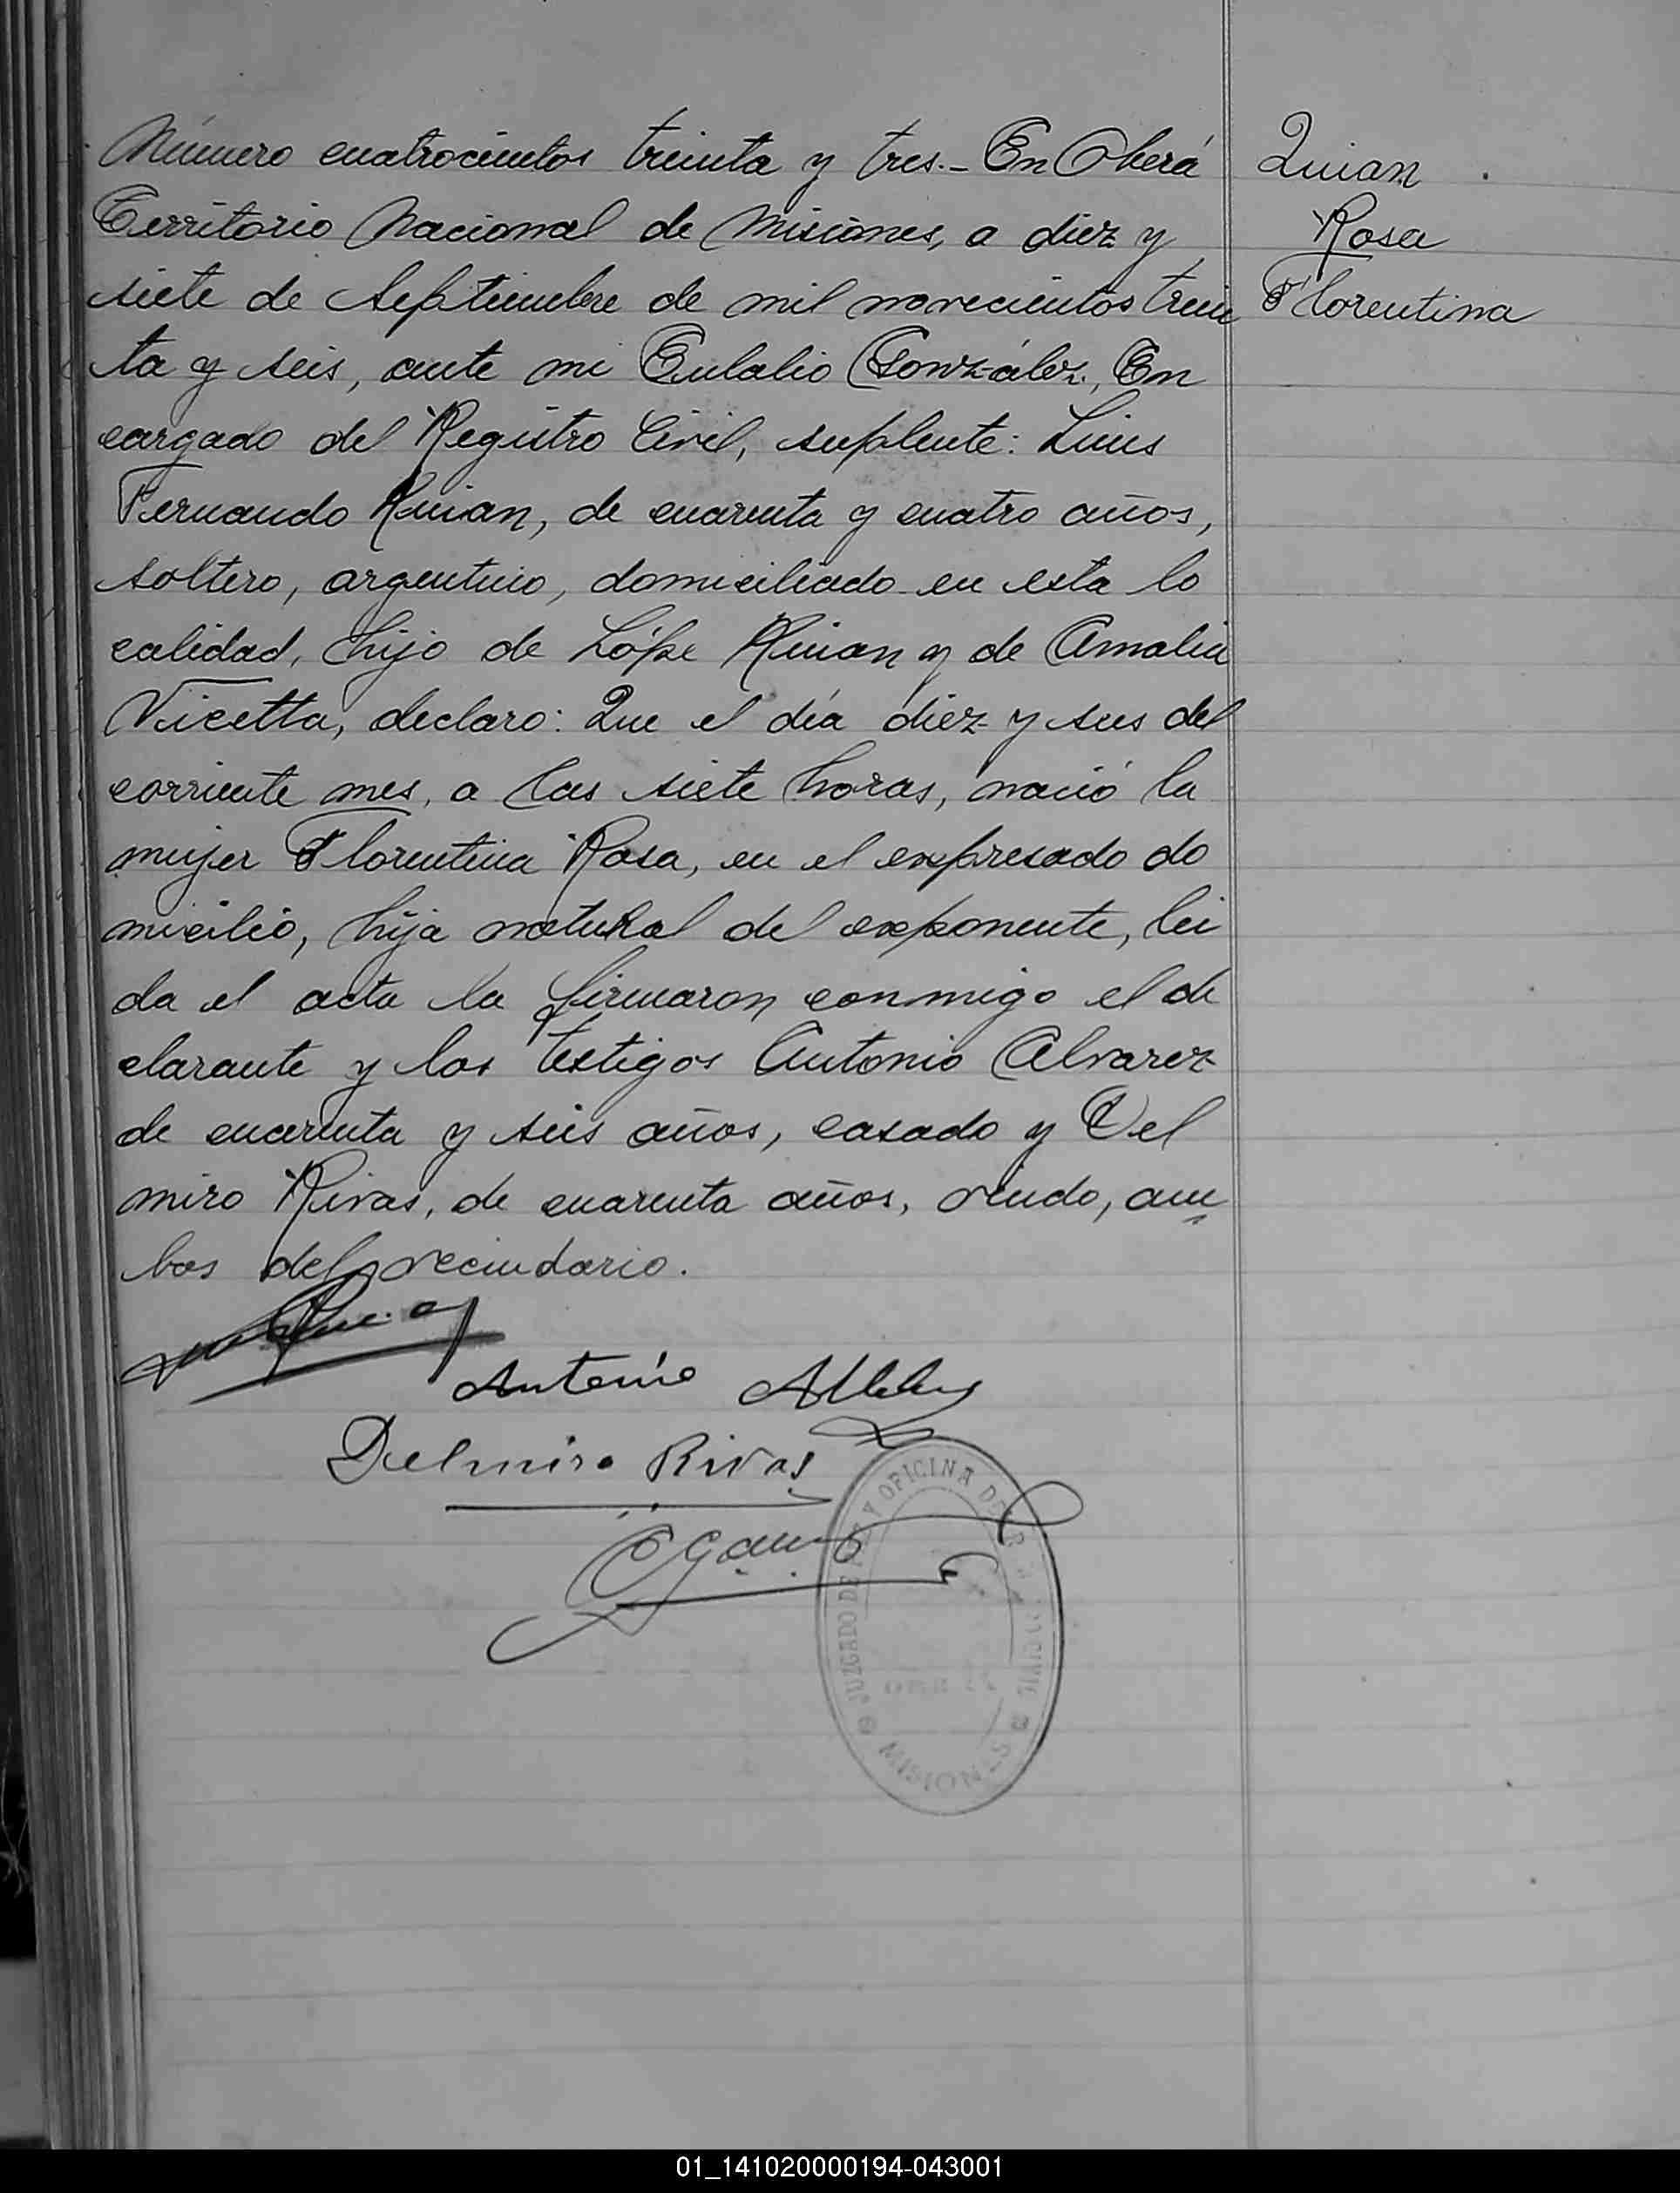 Número cuatrocientos treinta y tres.- En Oberá
Territorio Nacional de Misiones, a diez y
siete de Septiembre de mil novecientos trein
ta y seis, ante mi Eulalio González, En
cargado del Registro Civil, suplente: Luis
Fernando Kuian, de cuarenta y cuatro años,
soltero, argentino, domiciliado en esta lo
calidad, hijo de López Kuian y de Amalia
Vicetta, declaro: Que el día diez y seis del
corriente mes, a las siete horas, nació la
mujer Florentina Rosa, en el expresado do
micilio, hija natural del exponente, lei
da el acta la firmaron conmigo el de
clarante y los testigos Antonio Alvarez
de cuarenta y seis años, casado y Del
miro Rivas, de cuarenta años, viudo, am
bos del vecindario.
Quian
Rosa
Florentina
Antonio
Delmiro Rivas
JUZGADO DE PAZ Y OFICINA DEL
CIVIL
MISIONES
01_141020000194-043001